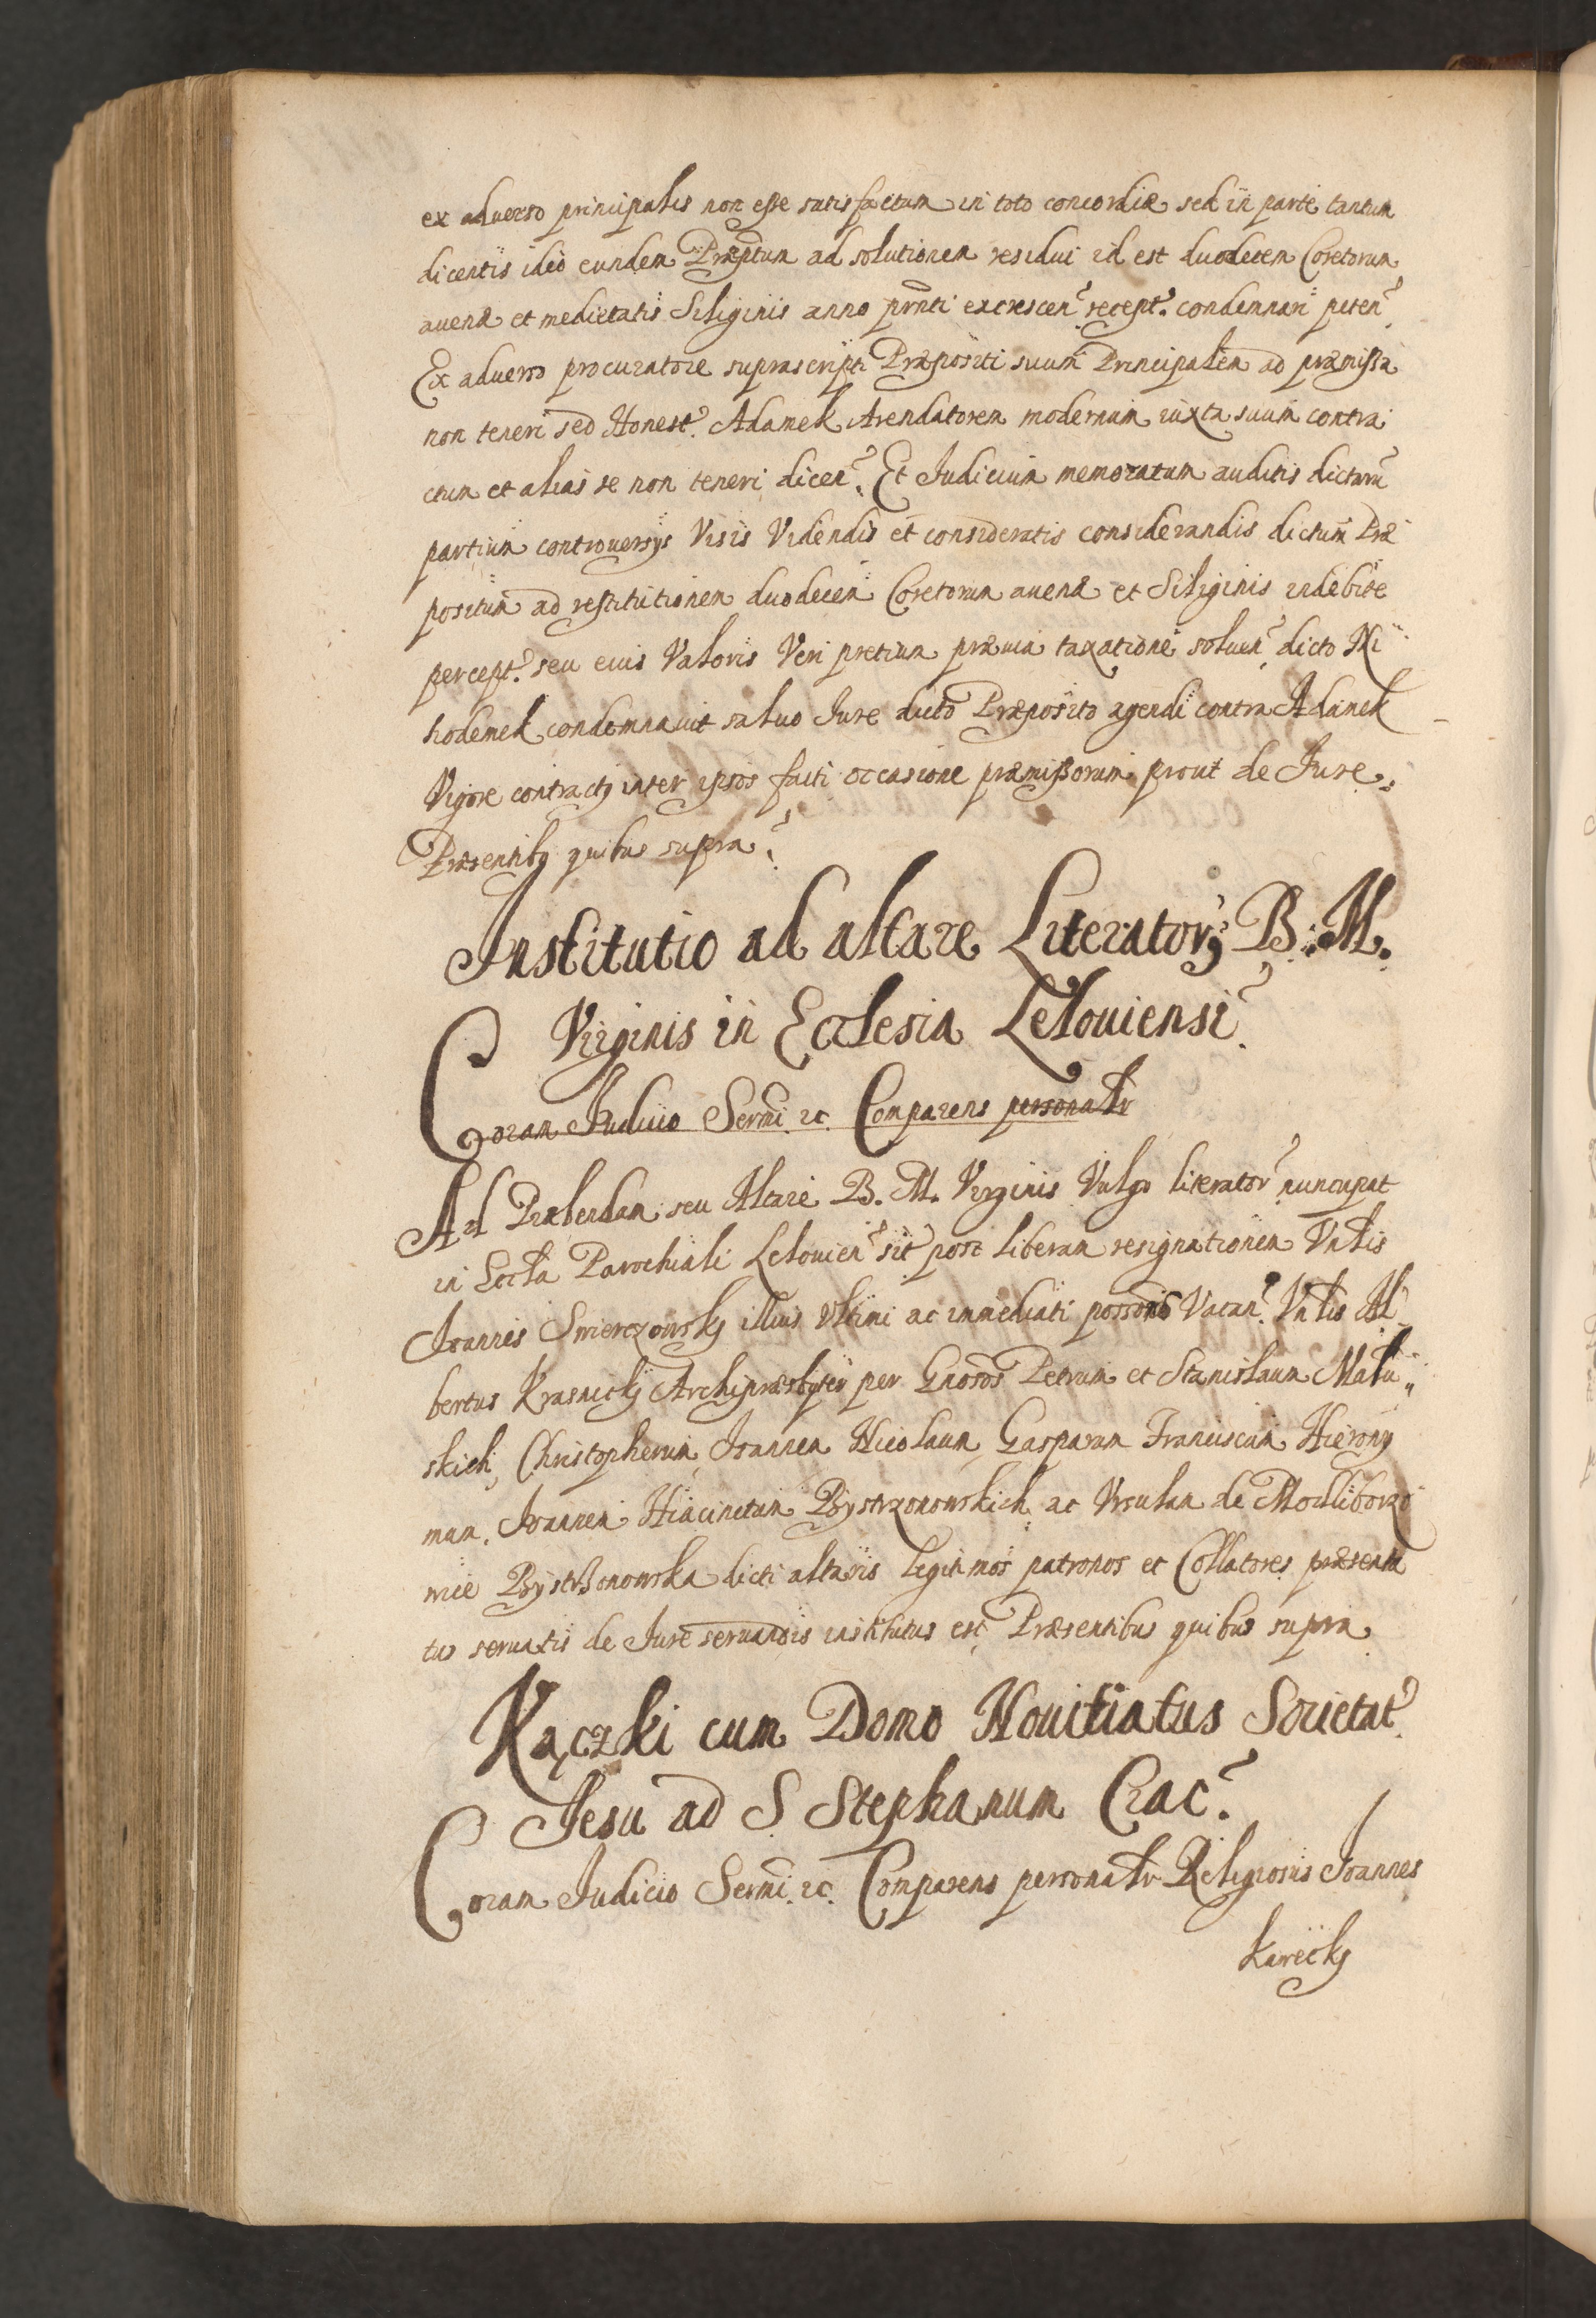 ex aduerso principalis non esse satisfactum in toto concordiæ sed in parte tantum
dicentis ideo eundem Præptum ad solutionem residui id est duodecem Coretorum
auenæ et medietatis Siliginis anno prnti excrescen recept. condemnari peten
Ex aduerso procuratore suprascripti Præpositi suum Principalem ad præmissa
non teneri sed Honest. Adamek Arendatorem modernum iuxta suum contra
ctum et alias se non teneri dicen. Et Judicium memoratum auditis dictaru
partium controuersys Visis Videndis et consideratis considerandis dictum Præ
positum ad restitutionem duodecem Coretorum auenæ et Siliginis indebite
percept. seu eius Valoris Veri pretium præuia taxatione soluen dicto Ni
hodemek condemnauit saluo Jure dicto Præposito agendi contra Adamek
Vigore contractus inter ipsos facti occasione præmissorum prout de Jure.
Præsentibus quibus supra.
Institutio ad altare Literator B. M.
Virginis in Ecclesia Lelouiensi
Coram Judicio Sermi. &c. Comparens personaltr
Ad Præbendam seu Altare B. M. Virginis Vulgo literator nuncupat
in Eccla Parochiali Lelouien sit post liberam resignationem Vnlis
Joannis Smierczowsky illius Vltimi ac immediati possoris Vacan. Vnlis Al
bertus Krasnicky Archipræsbyter per Gnosos Petrum et Stanislaum Malu
skich, Christopherum, Joannem Nicolaum, Gasparum Franciscum Hierony
mum, Joannem Hiacinctum Bystrzonowskich ac Vrsulam de Mocliborzo
wie Bystrzonowska dicti altaris legitimos patronos et Collatores præsenta
tus seruatis de Jure seruandis institutus est Præsentibus quibus supra
Kączki cum Domo Nouitiatus Societat
Jesu ad S Stephanum Crac.
Coram Judicio Sermi. &c. Comparens personaltr Religiosus Joannes
Kawecky